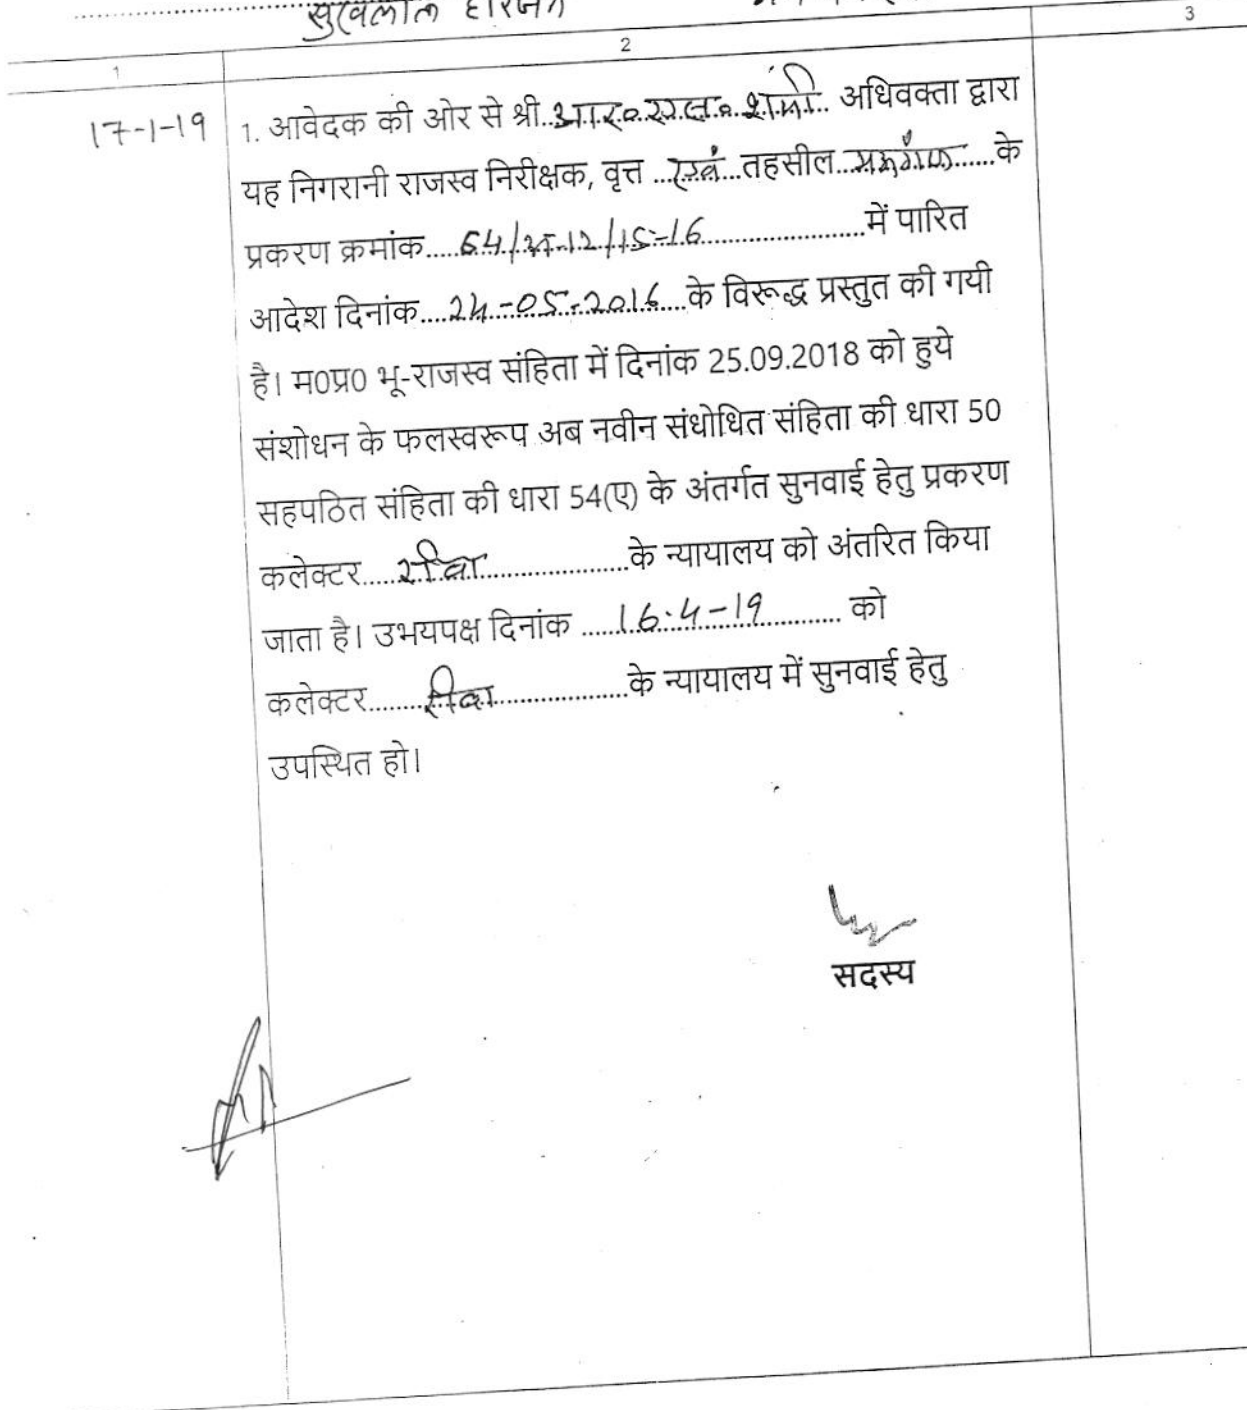 सुखलाल हरिजन
1 2 3
17-1-19 1. आवेदक की ओर से श्री..आर०एल०शर्मा.. अधिवक्ता द्वारा
यह निगरानी राजस्व निरीक्षक, वृत्त ...एवं...तहसील...मऊगंज......के
प्रकरण क्रमांक.....64/अ-12/15-16....................में पारित
आदेश दिनांक....24-05-2016....के विरूद्ध प्रस्तुत की गयी
है। म0प्र0 भू-राजस्व संहिता में दिनांक 25.09.2018 को हुये
संशोधन के फलस्वरूप अब नवीन संधोधित संहिता की धारा 50
सहपठित संहिता की धारा 54(ए) के अंतर्गत सुनवाई हेतु प्रकरण
कलेक्टर.....रीवा....................के न्यायालय को अंतरित किया
जाता है। उभयपक्ष दिनांक ......16.4-19............ को
कलेक्टर........रीवा..................के न्यायालय में सुनवाई हेतु
उपस्थित हो।
सदस्य